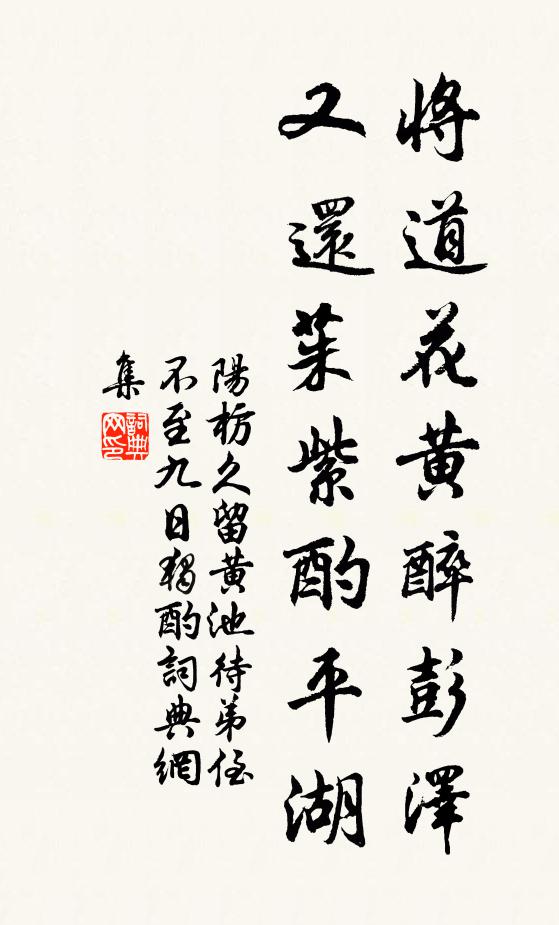 將道花黃醉彭澤
又還茱紫酌平湖
陽枋久留黃池待弟侄
不至九日獨酌詞典網
集
詞典
网印